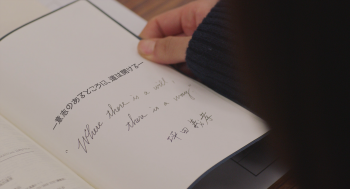 ―意志のあるところに、道は開ける―
"Where there is a will,
there is a way"
坪田義彦